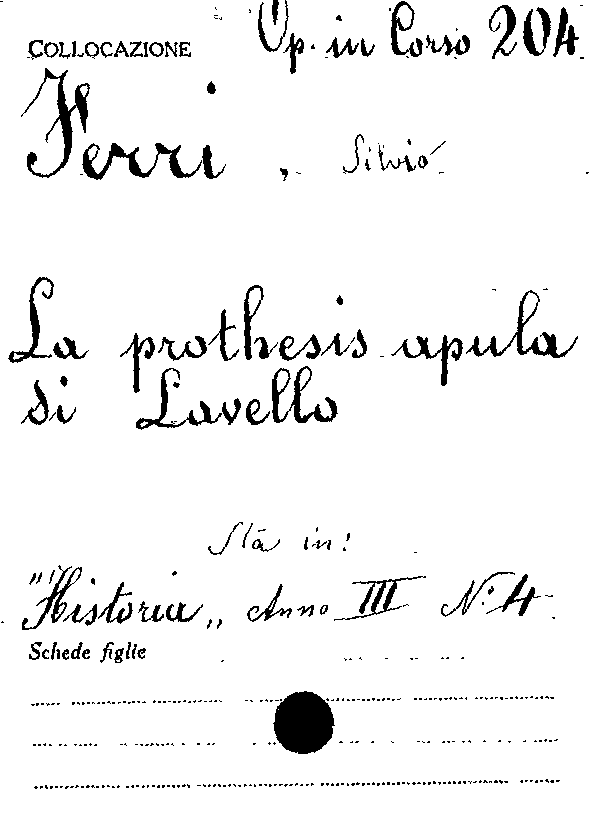 COLLOCAZIONE Op. in Corso 204
Ferri, Silvio
La prothesis apula
di Lavello
Sta in:
"Historia„ Anno III N.° 4
Schede figlie